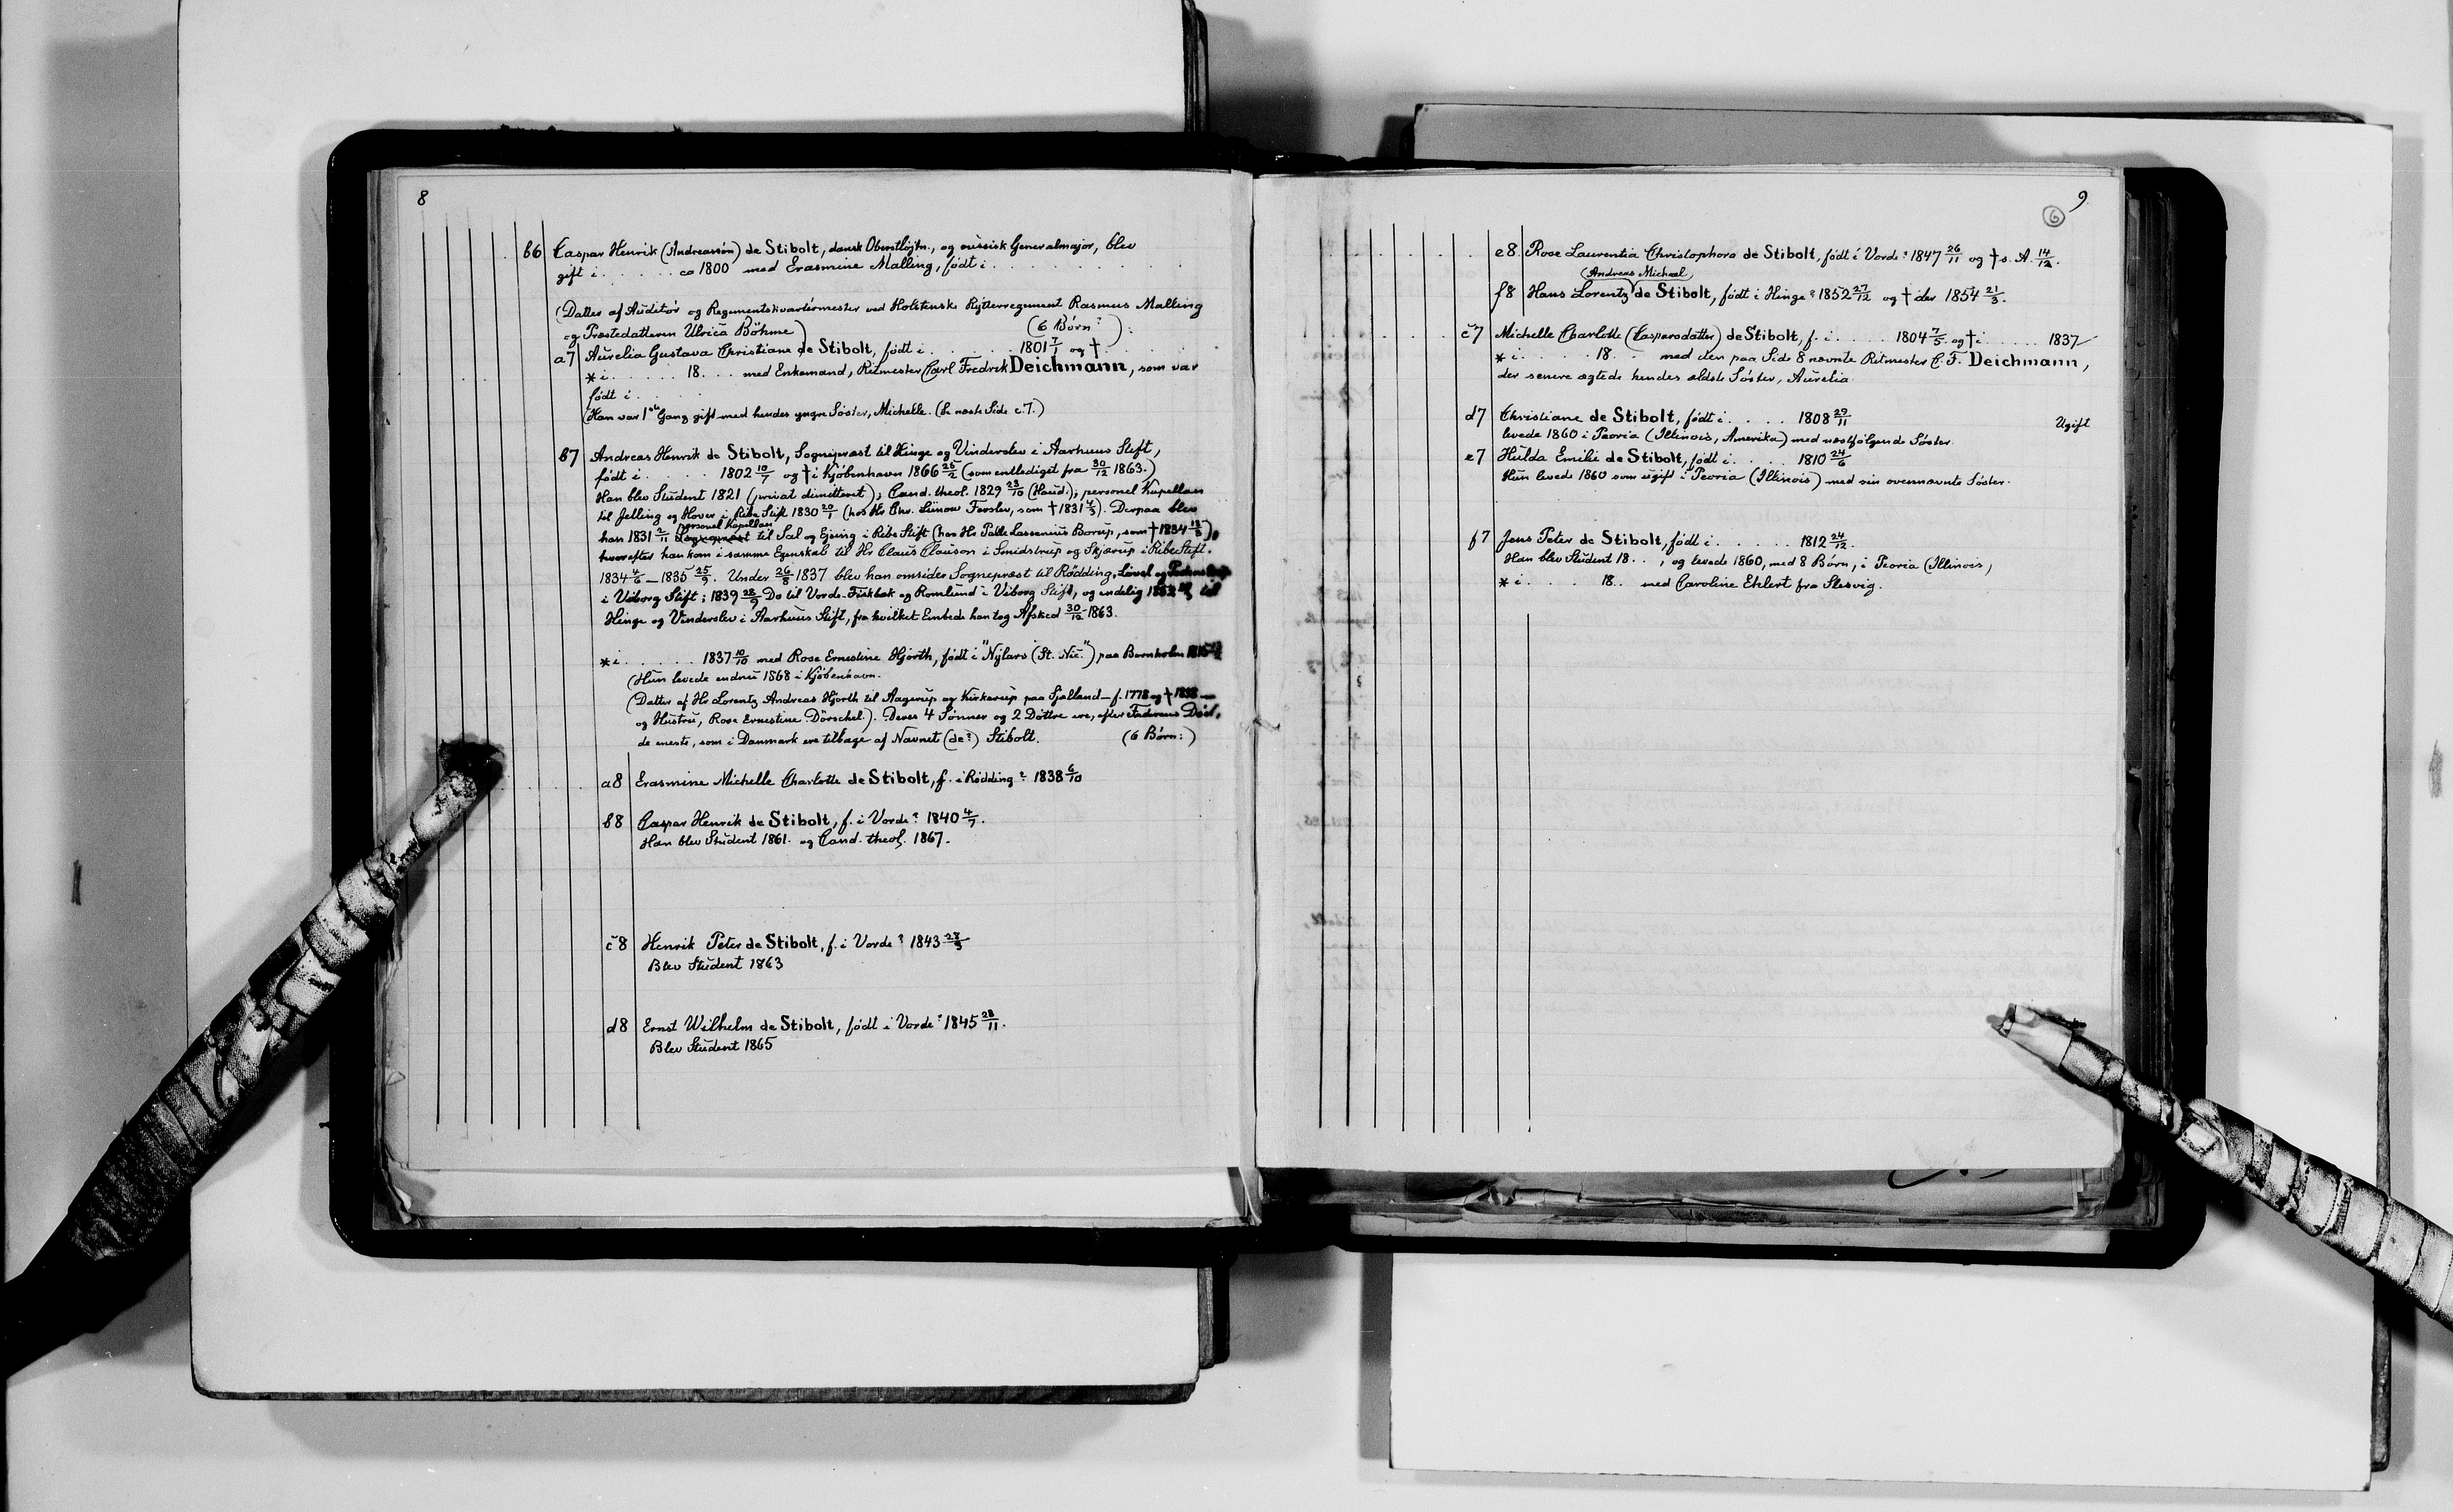 8
b6 Caspar Henrik (Andreassøn) de Stibolt, dansk Oberstløjtn., og russisk Generalmajor, blev
gift i . . . . . ca 1800 med Erasmine Malling, født i . . . . . . . .
(Datter af Auditør og Regimentskvartérmester ved Holstenske Rytterregiment Rasmus Malling
og Præstedatteren Ulrica Böhme) (6 Børn?) :
a7 Aurelia Gustava Christiane de Stibolt, født i . . . . . 1801 7/1 og † . . . . .
* i . . . . . 18. . . . med Enkemand, Ritmester Carl Fredrik Deichmann, som var
født i . . . . .
(Han var 1ste Gang gift med hendes yngre Søster, Michelle. (Se næste Side c7.)
b7 Andreas Henrik de Stibolt, Sognepræst til Hinge og Vinderslev i Aarhuus Stift,
født i . . . . . 1802 10/7 og † i Kjøbenhavn 1866 25/2 (som entlediget fra 30/12 1863.)
Han blev Student 1821 (privat dimitteret); Cand. theol. 1829 23/10 (Haud.); personel Kapellan
til Jelling og Hover i Ribe Stift 1830 20/1 (hos Hr Chr. Limow Fersler, som † 1831 4/5). Derpaa blev
personel Kapellan
han 1831 2/11 Sognepræst til Sal og Ejsing i Ribe Stift (hos Hr Palle Lassenius Borup, som † 1834 13/3),
hvorefter han kom i samme Egenskab til Hr Claus Clauson i Smidstrup og Skjærup i Ribe Stift.
1834 4/6 — 1835 25/9. Under 26/8 1837 blev han omsider Sognepræst til Rødding, Løvel og
i Viborg Stift; 1839 28/9 Do til Vorde-Fiskbæk og Romlund i Viborg Stift, og endelig 1852 til
Hinge og Vinderslev i Aarhuus Stift, fra hvilket Embede han tog Afsked 30/12 1863.
* i . . . . . . 1837 10/10 med Rose Ernestine Hjorth, født i "Nylars (St. Nic.") paa Bornholm
(Hun levede endnu 1868 i Kjøbenhavn.
(Datter af Hr Lorentz Andreas Hjorth til Aagerup og Kirkerup paa Sjælland — f. 1778 og † 1838 —
og Hustru, Rose Ernestine Dörschel.). Deres 4 Sønner og 2 Døttre ere, efter Faderens Død,
de eneste, som i Danmark ere tilbage af Navnet (de?) Stibolt. (6 Børn:)
a8 Erasmine Michelle Charlotte de Stibolt, f. i Rødding? 1838 6/10
b8 Caspar Henrik de Stibolt, f. i Vorde? 1840 4/7.
Han blev Student 1861. og Cand. theol. 1867.
c8 Henrik Peter de Stibolt, f. i Vorde? 1843 28/3
Blev Student 1863
d8 Ernst Wilhelm de Stibolt, født i Vorde? 1845 28/11.
Blev Student 1865
9
6
e8 Rose Laurentia Christophora de Stibolt, født i Vorde? 1847 26/11 og † s. A. 14/12.
(Andreas Michael)
f8 Hans Lorentz de Stibolt, født i Hinge? 1852 27/12 og † der 1854 21/3.
c7 Michelle Charlotte (Caspersdatter) de Stibolt, f. i . . . . . 1804 7/5 og † i . . . . . 1837
* i . . . . . 18. . med den paa Side 8 nævnte Ritmester C. F. Deichmann,
der senere ægtede hendes ældste Søster, Aurelia.
d7 Christiane de Stibolt, født i . . . . 1808 29/11 Ugift
levede 1860 i Peoria (Illinois, Amerika) med næstfølgende Søster.
e7 Hulda Emilie de Stibolt, født i . . . . 1810 24/6
Hun levede 1860 som ugift i Peoria (Illinois) med sin ovennævnte Søster.
f7 Jens Peter de Stibolt, født i . . . . . . 1812 24/12.
Han blev Student 18. . , og levede 1860, med 8 Børn, i Peoria (Illinois,)
* i . . . . 18. . med Caroline Ehlert fra Slesvig.